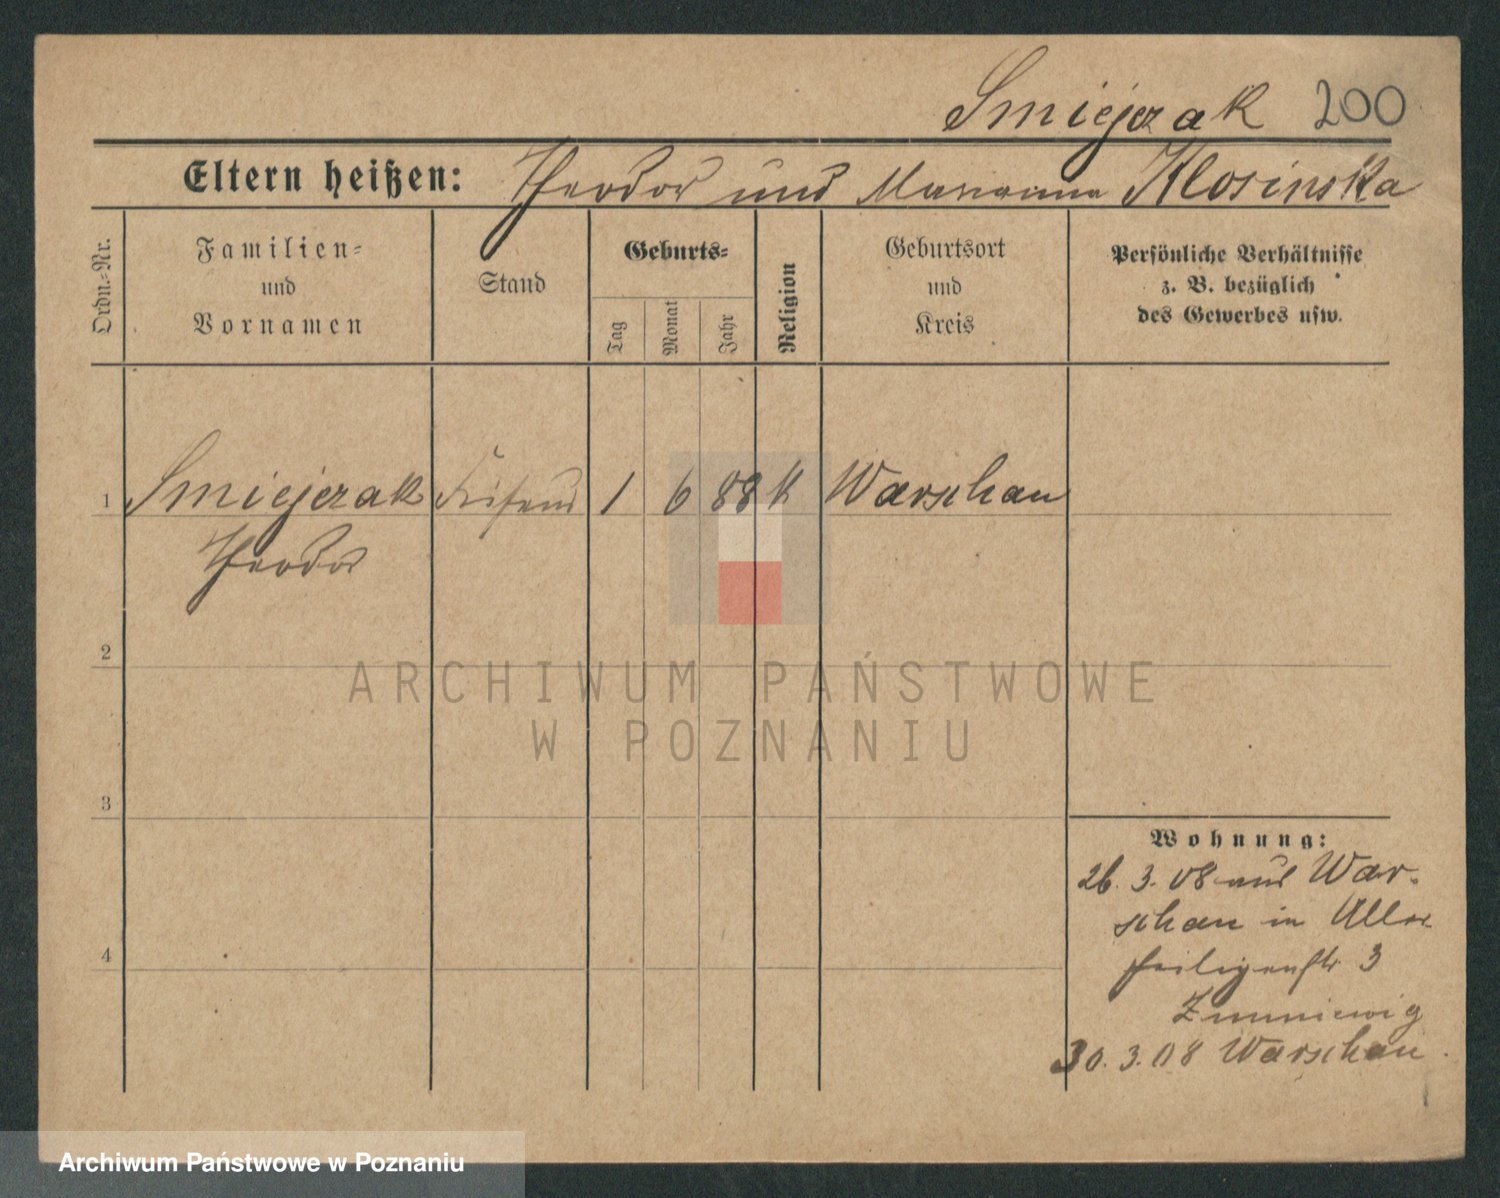 Smiejczak 200
Eltern heißen: Theodor und Marianna Klosinska
Ordn.-Nr.
Familien-
und
Vornamen
Stand
Geburts-
Tag
Monat
Jahr
Religion
Geburtsort
und
Kreis
Persönliche Verhältnisse
z. B. bezüglich
des Gewerbes usw.
1 Smiejczak Friseur 1 6 88 k Warschau
Theodor
2
ARCHIWUM PAŃSTWOWE
W POZNANIU
3
Wohnung:
26. 3. 08 aus War-
schau in Aller-
heiligenstr 3
4
30. 3. 08 Warschau.
Archiwum Państwowe w Poznaniu